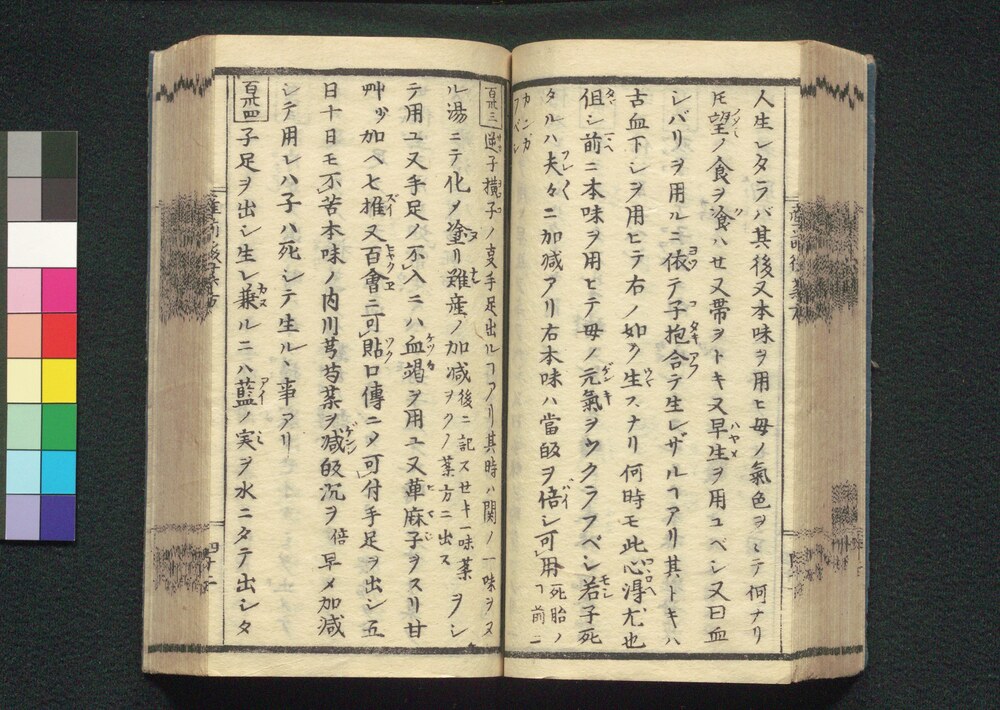 人生レタラバ其後又本味ヲ用ヒ母ノ氣色ヲシテ何ナリ
𪜈望ノ食ヲ食ハセ又帯ヲトキ又早生ヲ用ユベシ又曰血
シバリヲ用ルニ依テ子抱合テ生レザルヿアリ其トキハ
古血下シヲ用ヒテ右ノ如ク生スナリ何時モ此心得尤也
但シ前ニ本味ヲ用ヒテ母ノ元氣ヲウクラフベシ若子死
タルハ夫々ニ加減アリ右本味ハ當皈ヲ倍シ可用死胎ノヿ前ニ
カンガフベシ
百卅三 逆子横子ノ亥手足出ルヿアリ其時ハ関ノ一味ヲヌ
ル湯ニテ化メ塗リ難産ノ加减後ニ記スセキ一味薬ヲクノ薬方ニ出スヲシ
テ用ユ又手足ノ不入ニハ血竭ヲ用ユ又萆麻子ヲスリ甘
艸ッ加ヘ七推又百會ニ可貼口傳ニメ可付手足ヲ出シ五
日十日モ不苦本味ノ内川芎芍薬ヲ减皈沉ヲ倍早メ加减
シテ用レハ子ハ死シテ生ルヽ事アリ
百卅四 子足ヲ出シ生レ兼ルニハ藍ノ実ヲ水ニタテ出シタ
四十二